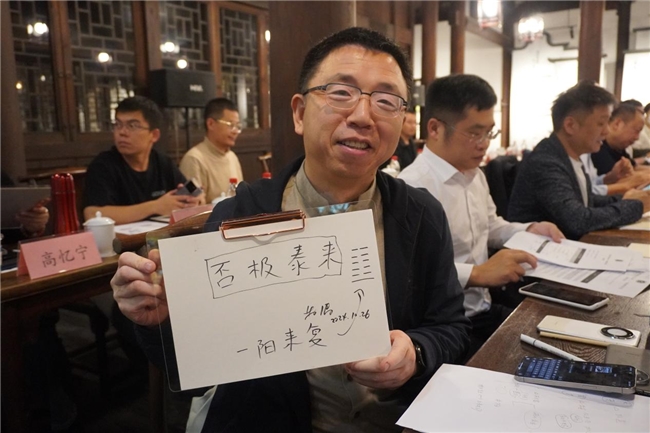 否极泰来
2024.10.26
一阳来复
高忆宁